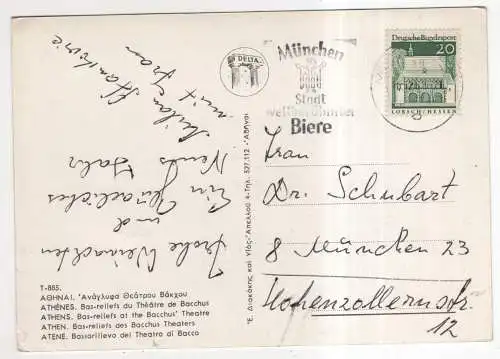 Frohe Weinachten
und
Ein Glückliches
Neues Jahr
mit Frau
DELTA
München
Stadt
weltberühmter
Biere
Deutsche Bundespost
20
LORSCH/HESSEN
Frau
Dr. Schubart
8 München 23
Hohenzollernstr.
12
Ἐ. Διακάκης καὶ Υἱός-Ἀπελλοῦ 4-Τηλ. 527.112-Ἀθῆναι
T-885.
ΑΘΗΝΑΙ. Ἀνάγλυφα Θεάτρου Βάκχου
ATHÈNES. Bas-reliefs du Théâtre de Bacchus
ATHENS. Bas-reliefs at the Bacchus' Theatre
ATHEN. Bas-reliefs des Bacchus Theaters
ATENE. Bassorilievo del Teatro di Bacco